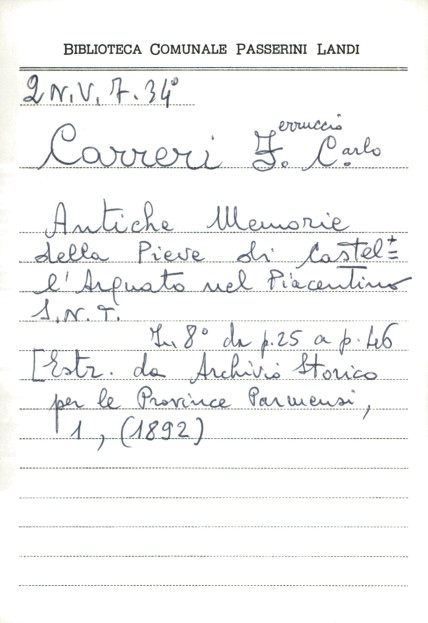 BIBLIOTECA COMUNALE PASSERINI LANDI
2 N.V. 7. 34°
Carreri F.erruccio C.arlo
Antiche Memorie
della Pieve di Castel=
l'Arquato nel Piacentino
S.N.T.
In 8° da p.25 a p.46
[Estr. da Archivio Storico
per le Province Parmensi,
1, (1892)